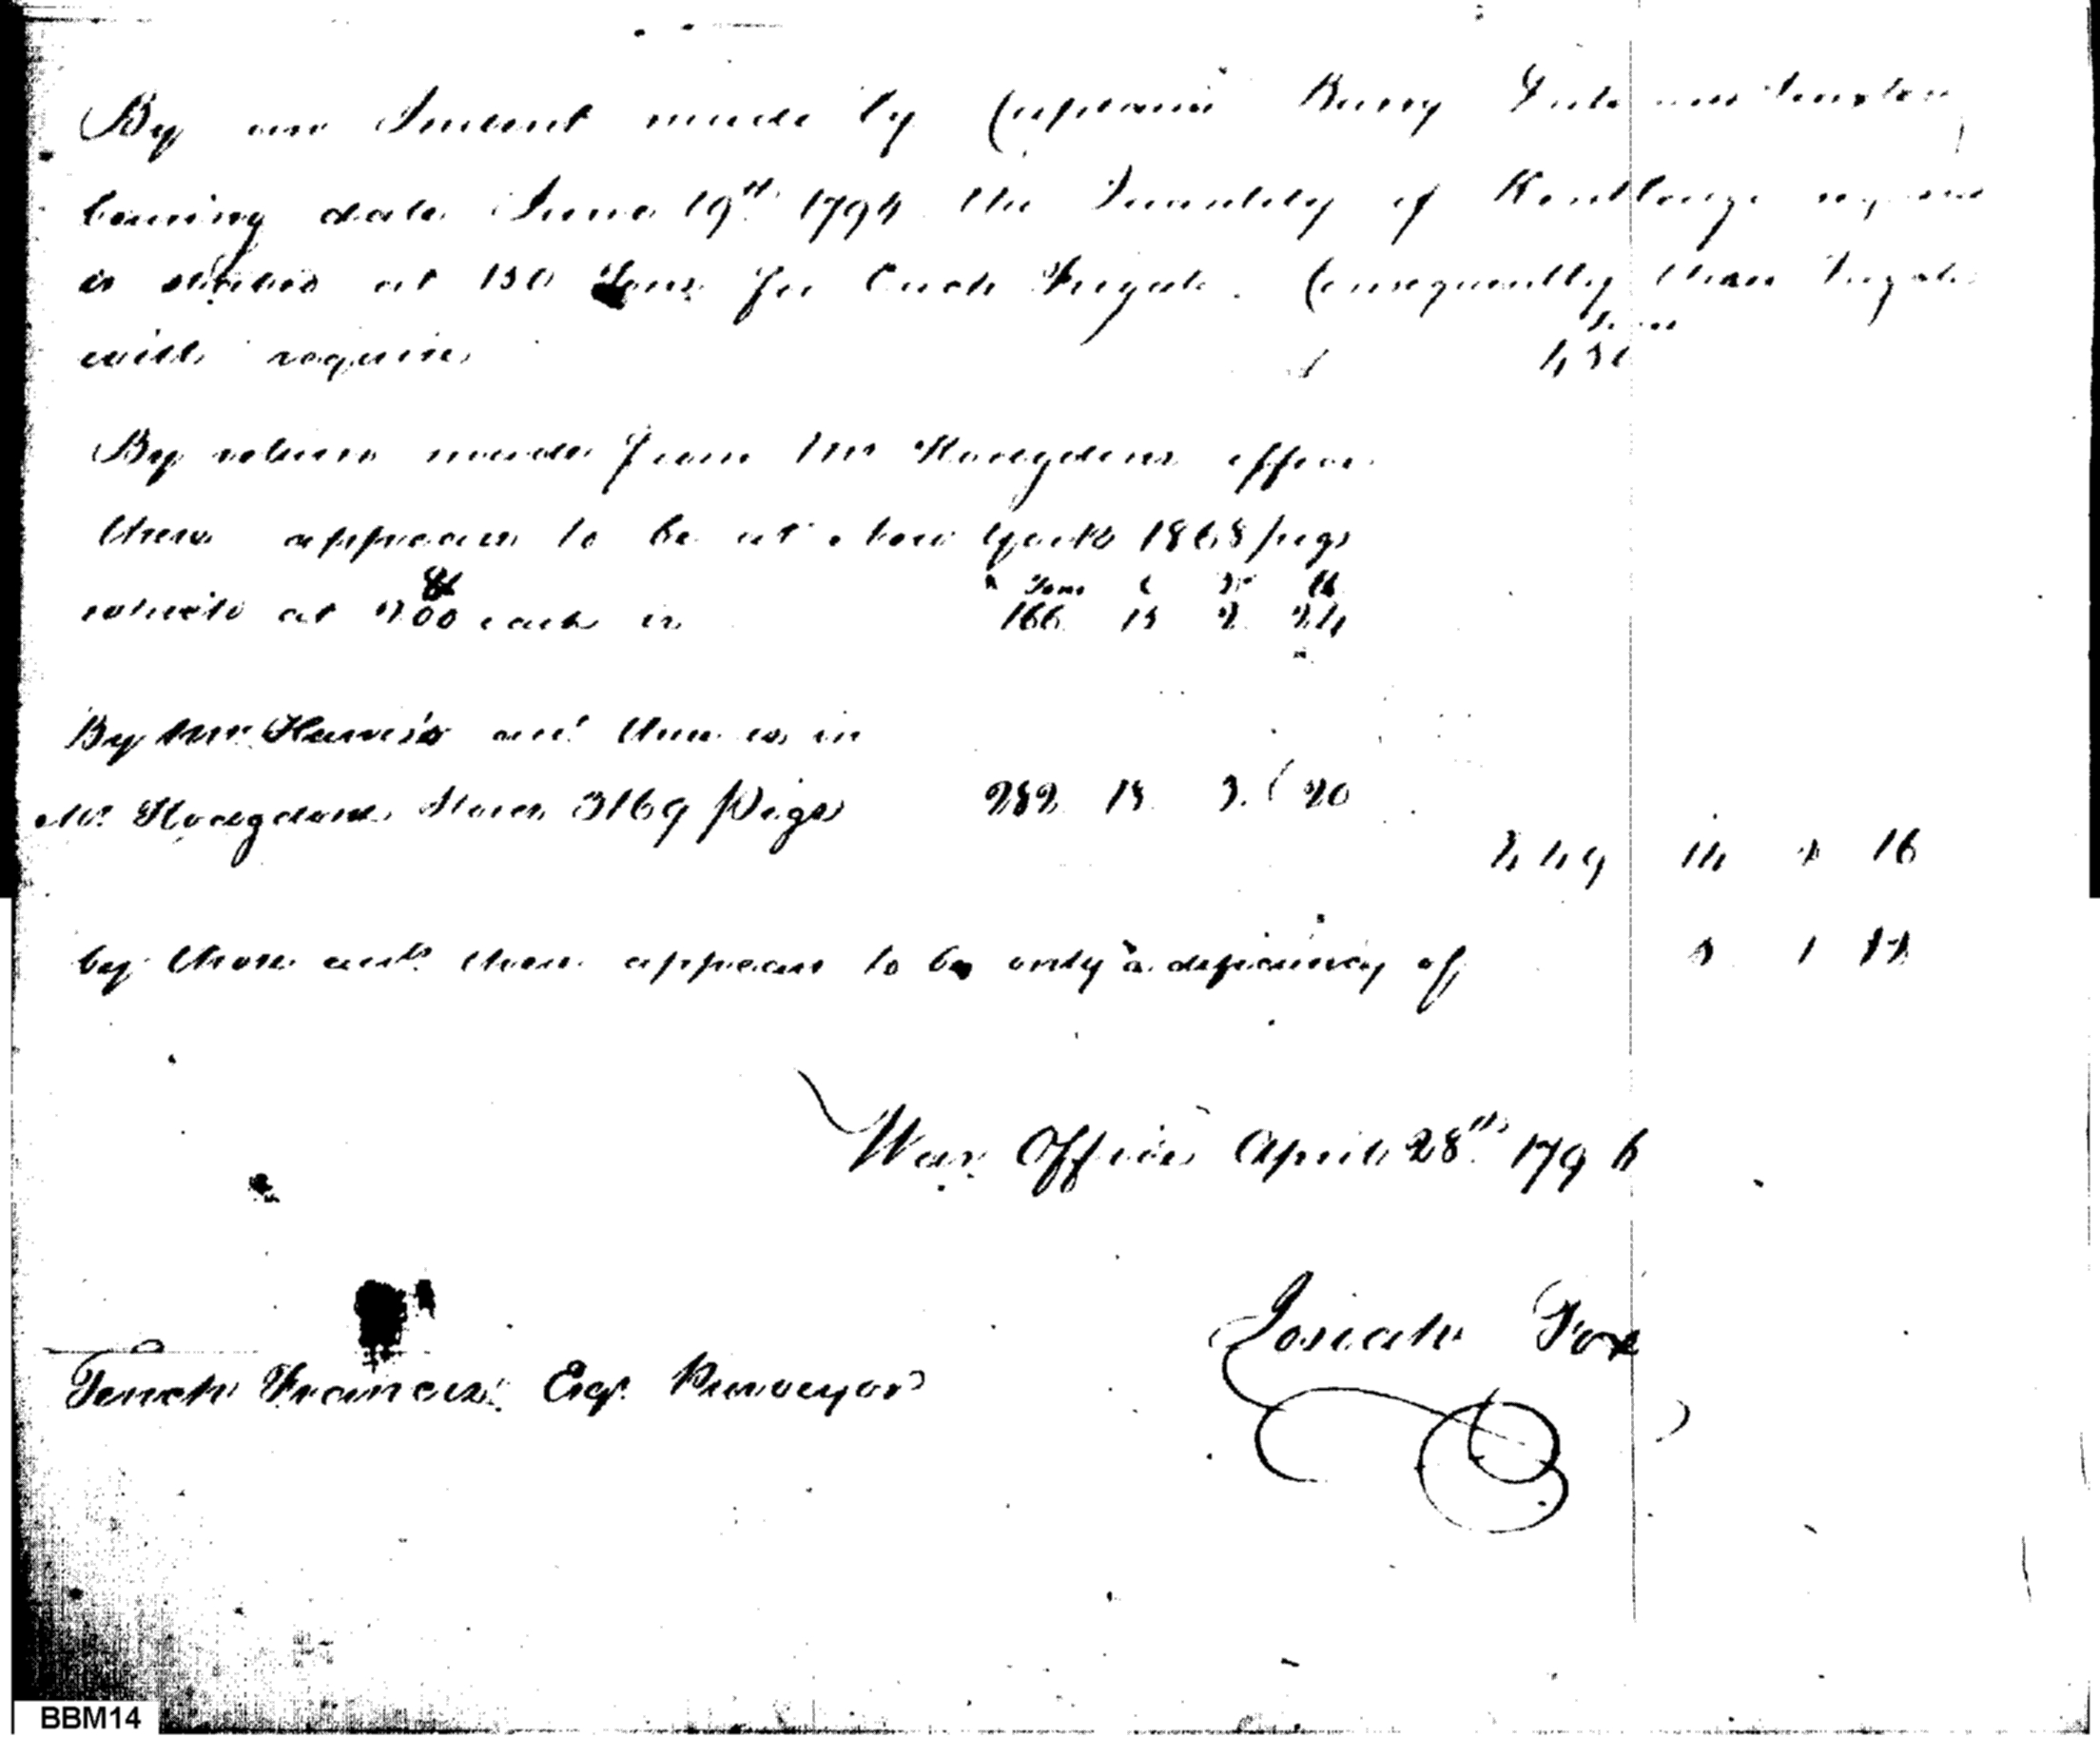 By an Indent made by Captain Barry Superintendent
bearing date June 19th 1794 the Quantity of Kentledge required
is stated at 150 Tons for Each Frigate. Consequently three Frigates
will require
Tons
450
By return made from Mr Hodgdons office
there appears to be at New York 1868 pigs
which at 200 each is
Tons C Qr lb
166 15 2 24
By Mr Harris's acct there is in
Mr Hodgdons Stores 3169 Pigs 282 18 3 20
449 14 2 16
by these accts there appears to be only a deficiency of 5 1 12
War Office April 28th 1796
Josiah Fox
Tench Francis Esqr Purveyor
BBM14